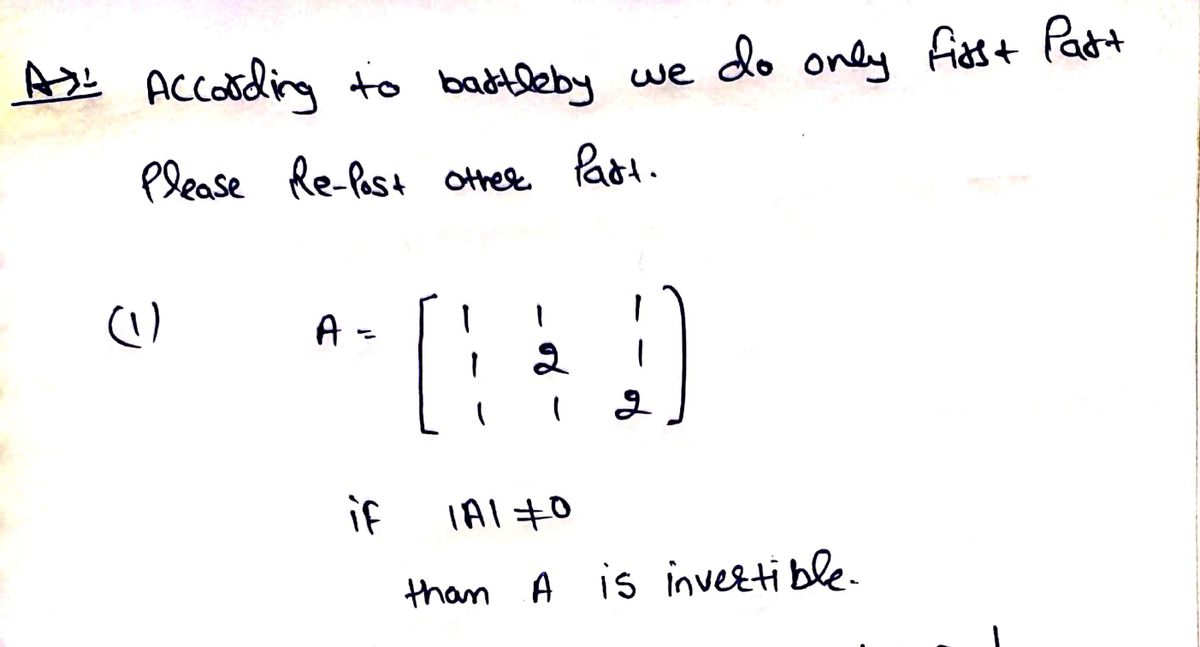 A→:- According to bartleby we do only first Part
Please Re-Post other Part.
(1) A = [ 1 1 1
1 2 1
1 1 2 ]
if |A| ≠ 0
than A is invertible.